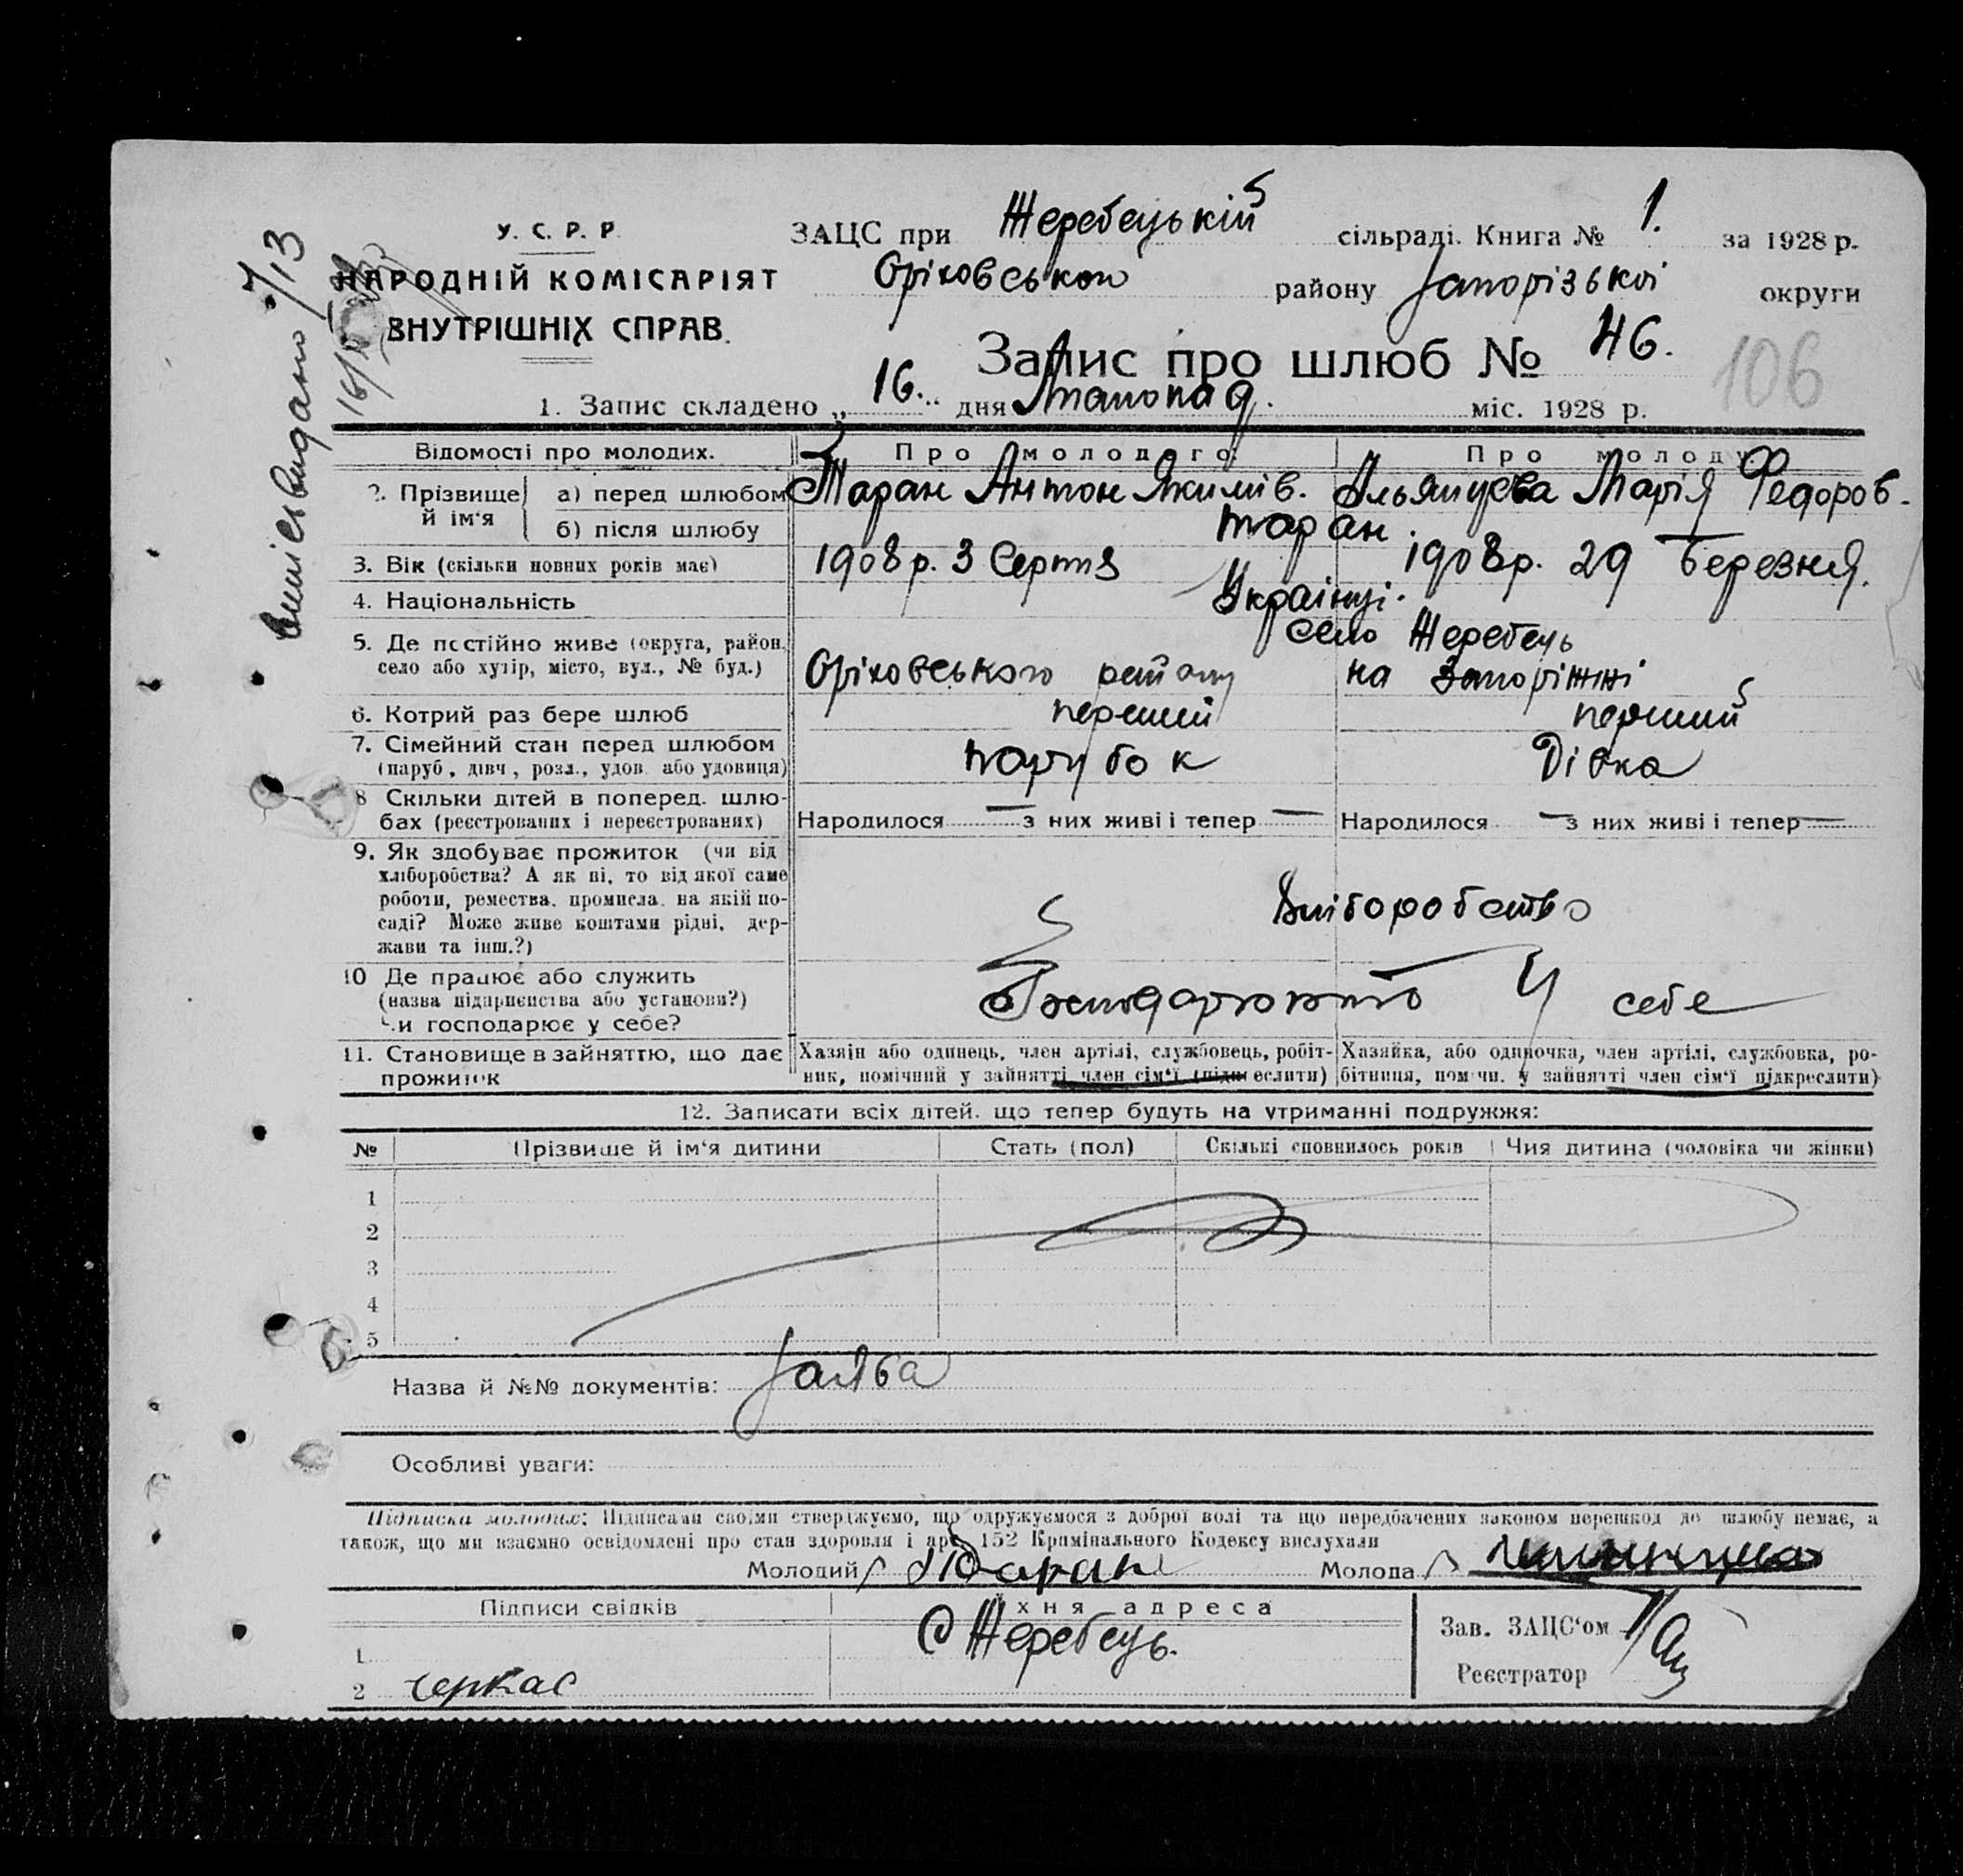 У. С. Р. Р.
НАРОДНІЙ КОМІСАРІЯТ
ВНУТРІШНІХ СПРАВ.
ЗАЦС при Жеребецькій сільраді. Книга № 1. за 1928 р.
Оріховського району Запорізької округи
Запис про шлюб № 46.
106
1. Запис складено „16.“ дня Листопад. міс. 1928 р.
видано 7/13
Відомості про молодих. Про молодого: Про молоду:
2. Прізвище й ім‘я а) перед шлюбом Таран Антон Якимів. Марія Федоров.
б) після шлюбу Таран.
3. Вік (скільки повних років має) 1908 р. 3 Серпня 1908 р. 29 Березня.
4. Національність Українці.
5. Де постійно живе (округа, район, село Жеребець
село або хутір, місто, вул., № буд.) Оріховського району на Запоріжжі
6. Котрий раз бере шлюб перший перший
7. Сімейний стан перед шлюбом
(паруб., дівч., розл., удов. або удовиця) парубок Дівка
8 Скільки дітей в поперед. шлю-
бах (реєстрованих і нереєстрованих) Народилося — з них живі і тепер — Народилося — з них живі і тепер —
9. Як здобуває прожиток (чи від
хліборобства? А як ні, то від якої саме
роботи, ремества, промисла, на якій по-
саді? Може живе коштами рідні, дер-
жави та інш.?) Хліборобство
10 Де працює або служить
(назва підприємства або установи?)
Чи господарює у себе? Господарюють у себе
11. Становище в зайняттю, що дає
прожиток
Хазяїн або одинець, член артілі, службовець, робіт-
ник, помічний у зайнятті член сім‘ї (підкреслити)
Хазяйка, або одиночка, член артілі, службовка, ро-
бітниця, помічн. у зайнятті член сім‘ї підкреслити)
12. Записати всіх дітей, що тепер будуть на утриманні подружжя:
№ Прізвище й ім‘я дитини Стать (пол) Скількі сповнилось років Чия дитина (чоловіка чи жінки)
1
2
3
4
5
Назва й №№ документів: Заява
Особливі уваги:
Підписка молодих: Підписами своїми стверджуємо, що одружуємося з доброї волі та що передбачених законом перешкод до шлюбу немає, а
також, що ми взаємно освідомлені про стан здоровля і арт. 152 Кримінального Кодексу вислухали
Молодий Таран Молода
Підписи свідків Їхня адреса
Зав. ЗАЦС‘ом
1 С Жеребець.
Реєстратор
2 Черкас